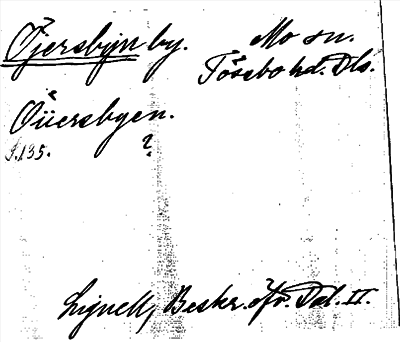 Öjersbyn by. Mo sn.
Tössbo hd. Dls.
Öüersbyen.
S. 135. ?
Lignell, Beskr. öfv. Dal. II.